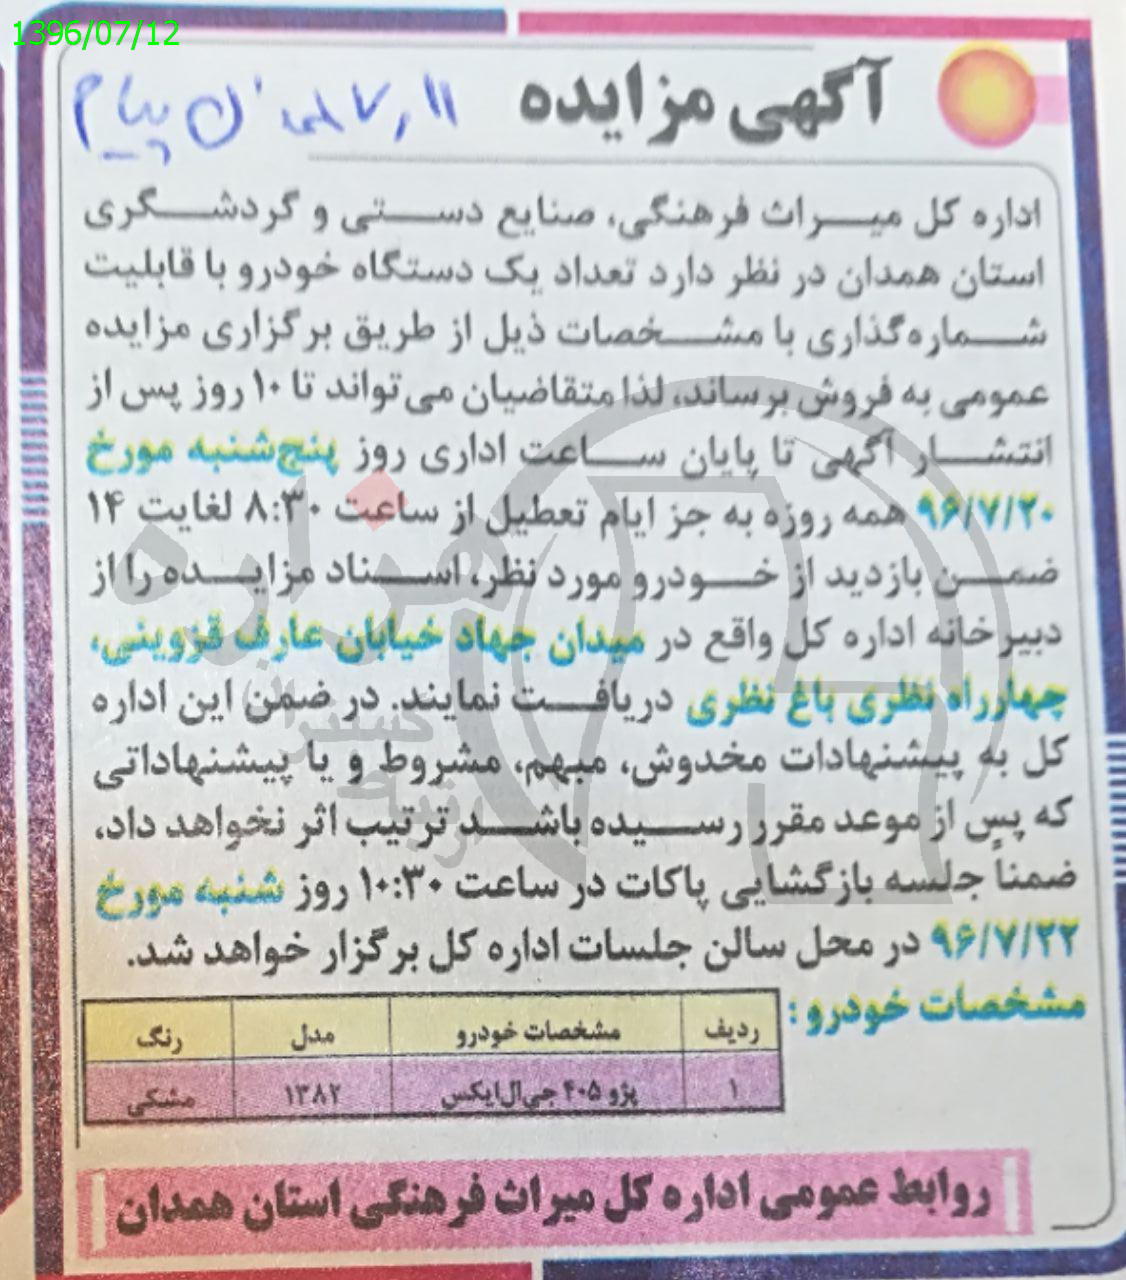 1396/07/12
آگهی مزایده
۷٫۱۱ همدان پیام
اداره کل میراث فرهنگی، صنایع دستی و گردشگری
استان همدان در نظر دارد تعداد یک دستگاه خودرو با قابلیت
شماره‌گذاری با مشخصات ذیل از طریق برگزاری مزایده
عمومی به فروش برساند، لذا متقاضیان می‌تواند تا ۱۰ روز پس از
انتشار آگهی تا پایان ساعت اداری روز پنج‌شنبه مورخ
۹۶/۷/۲۰ همه روزه به جز ایام تعطیل از ساعت ۸:۳۰ لغایت ۱۴
ضمن بازدید از خودرو مورد نظر، اسناد مزایده را از
دبیرخانه اداره کل واقع در میدان جهاد خیابان عارف قزوینی،
چهارراه نظری باغ نظری دریافت نمایند. در ضمن این اداره
کل به پیشنهادات مخدوش، مبهم، مشروط و یا پیشنهاداتی
که پس از موعد مقرر رسیده باشد ترتیب اثر نخواهد داد،
ضمناً جلسه بازگشایی پاکات در ساعت ۱۰:۳۰ روز شنبه مورخ
۹۶/۷/۲۲ در محل سالن جلسات اداره کل برگزار خواهد شد.
مشخصات خودرو :
ردیف مشخصات خودرو مدل رنگ
۱ پژو ۴۰۵ جی‌ال‌ایکس ۱۳۸۲ مشکی
روابط عمومی اداره کل میراث فرهنگی استان همدان
هزاره